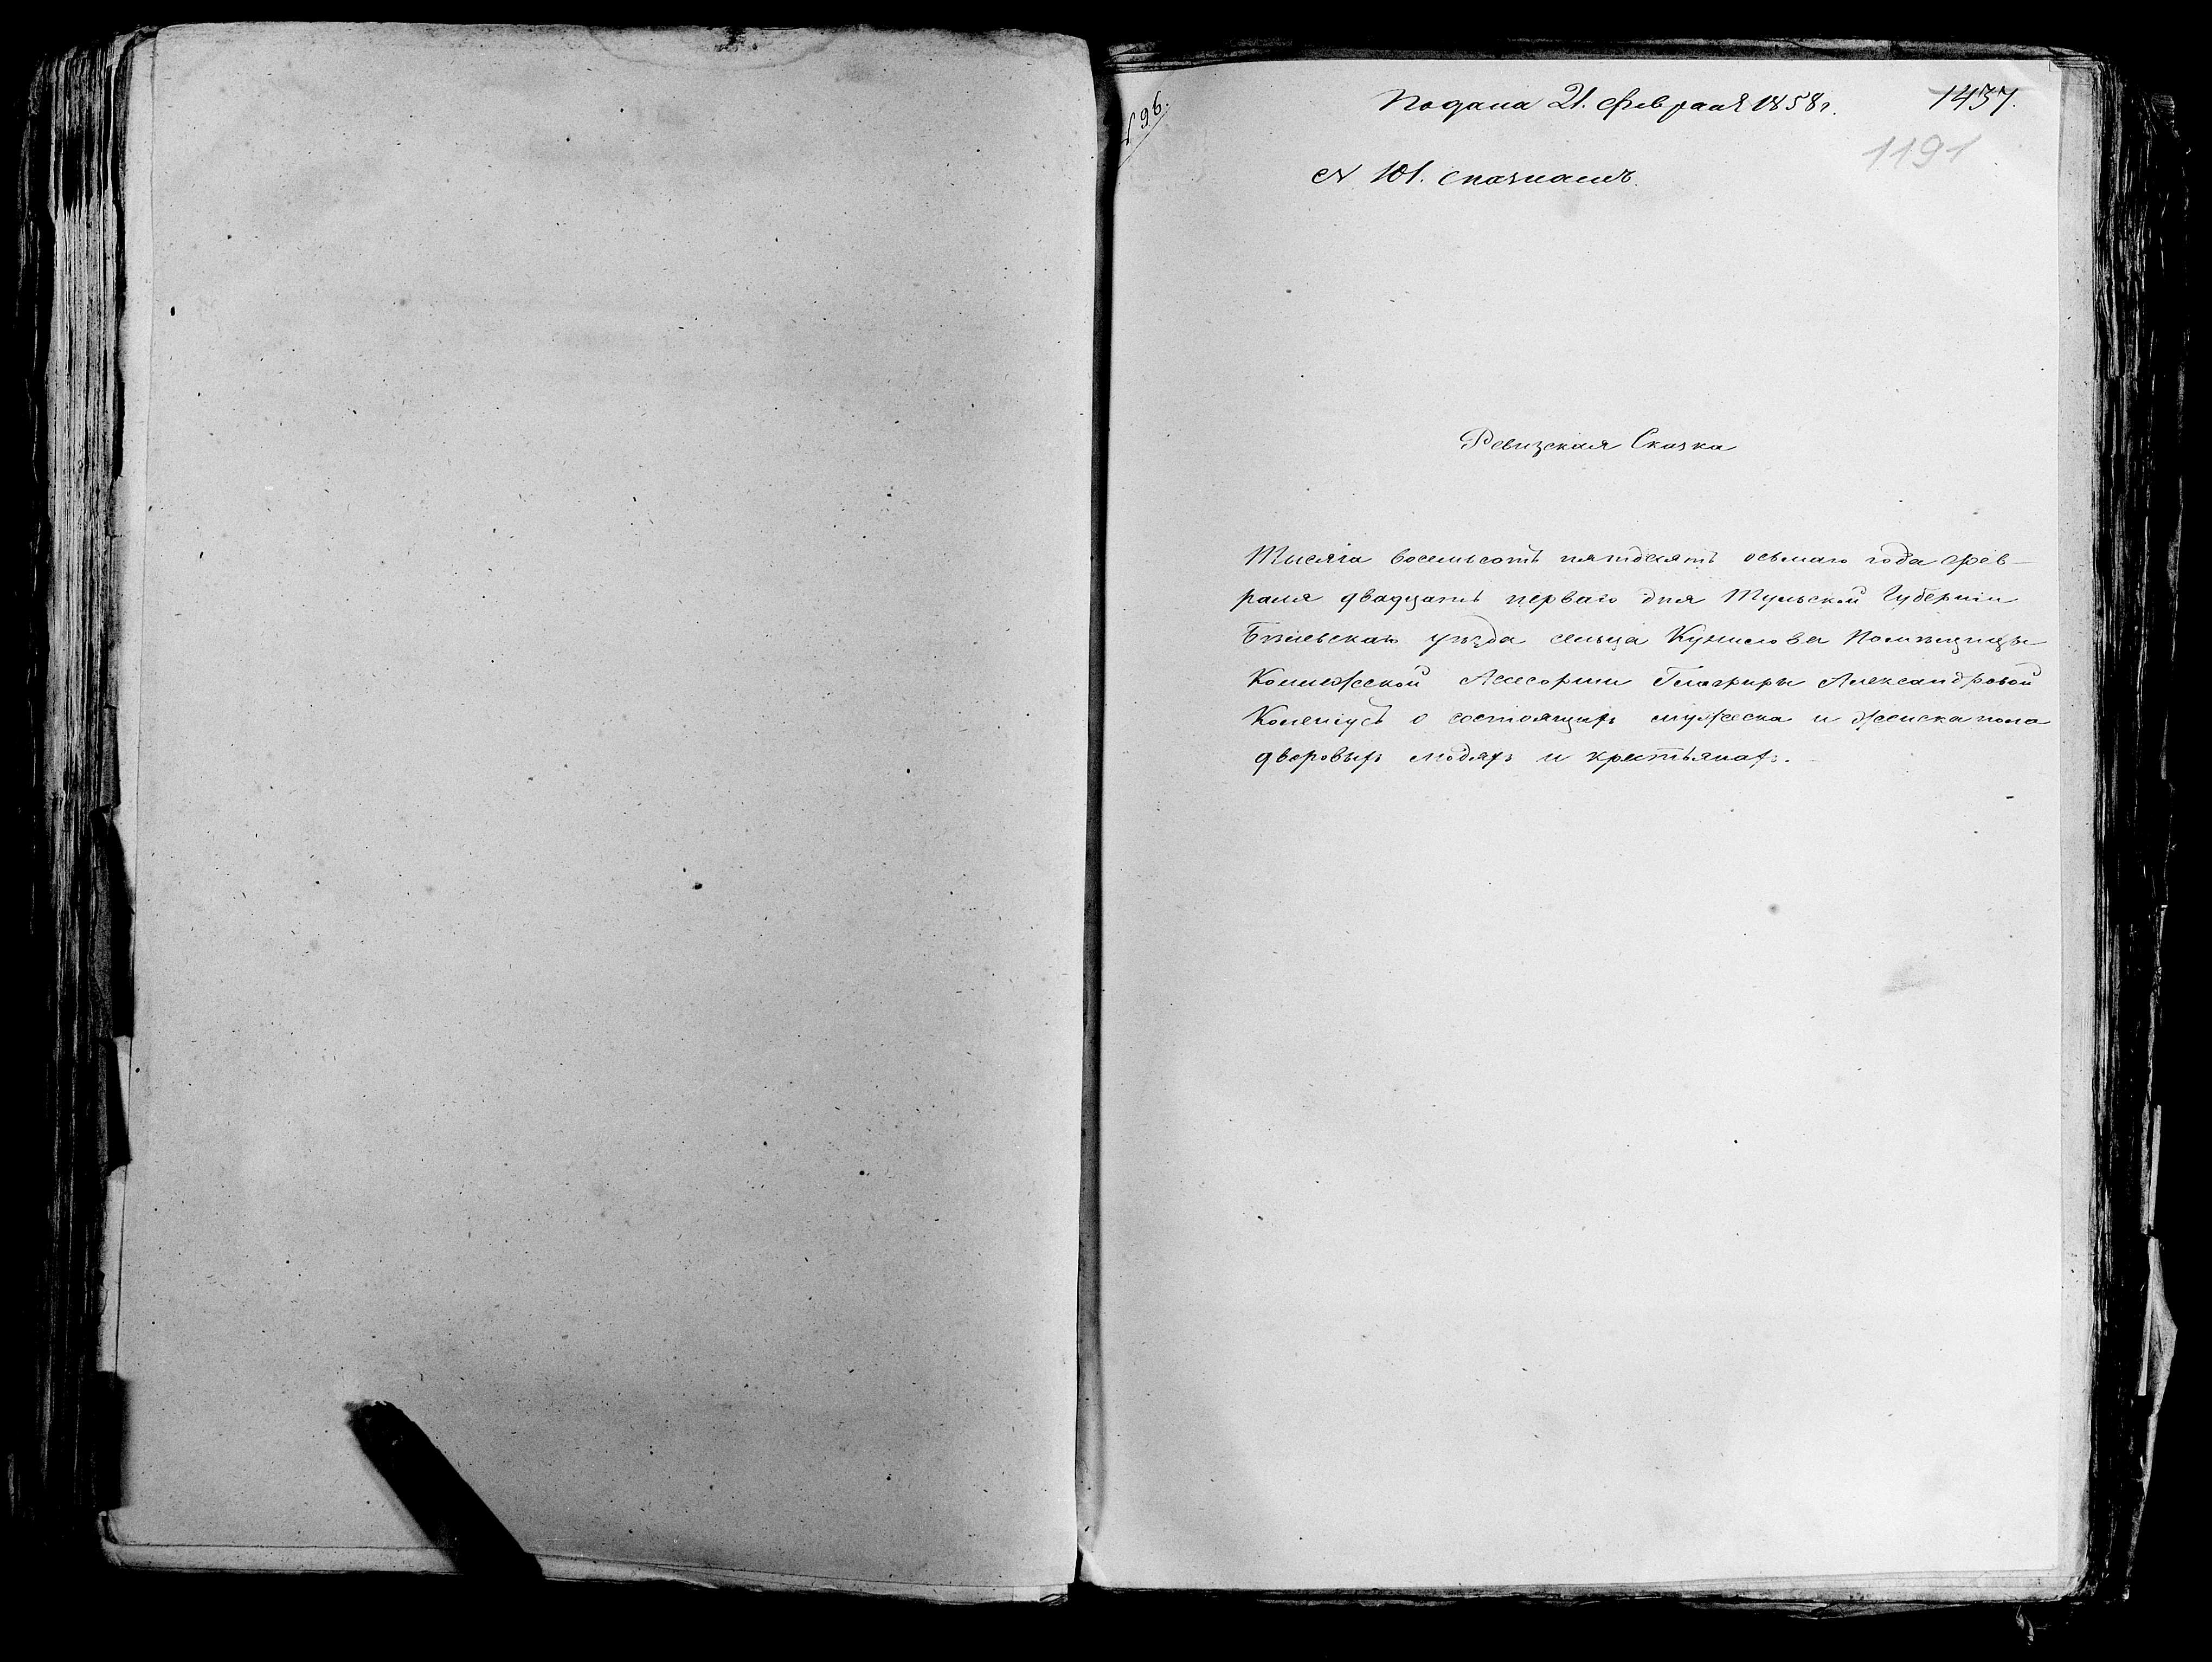 Подана 21. Февраля 1858 г.
1437.
1191
№ 96.
№ 101.
Ревизская Сказка
Тысяча восемьсотъ пятдесятъ осьмаго года Фев-
раля двадцать перваго дня Тульской Губерніи
Бѣлевскаго уѣзда сельца Кунилова Помѣщицы
Коллежской Асесорши Глафиры Александровой
о состоящихъ мужеска и женска пола
дворовыхъ людяхъ и крестьянахъ.